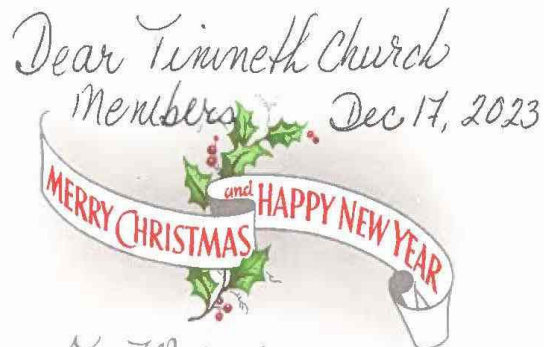 Dear Tinineth Church
Members Dec 17, 2023
MERRY CHRISTMAS and HAPPY NEW YEAR